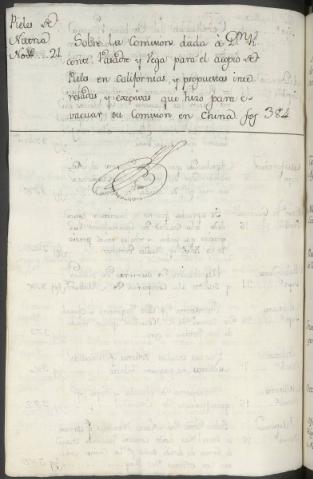 Pieles de
Nutria
Nov.e 21
Sobre la Comision dada a D.n Vi
cente Vasadre y Vega para el acopio de
Pieles en Californias, y propuestas inte
resadas y excesivas que hizo para e
vacuar su Comision en China foj 384